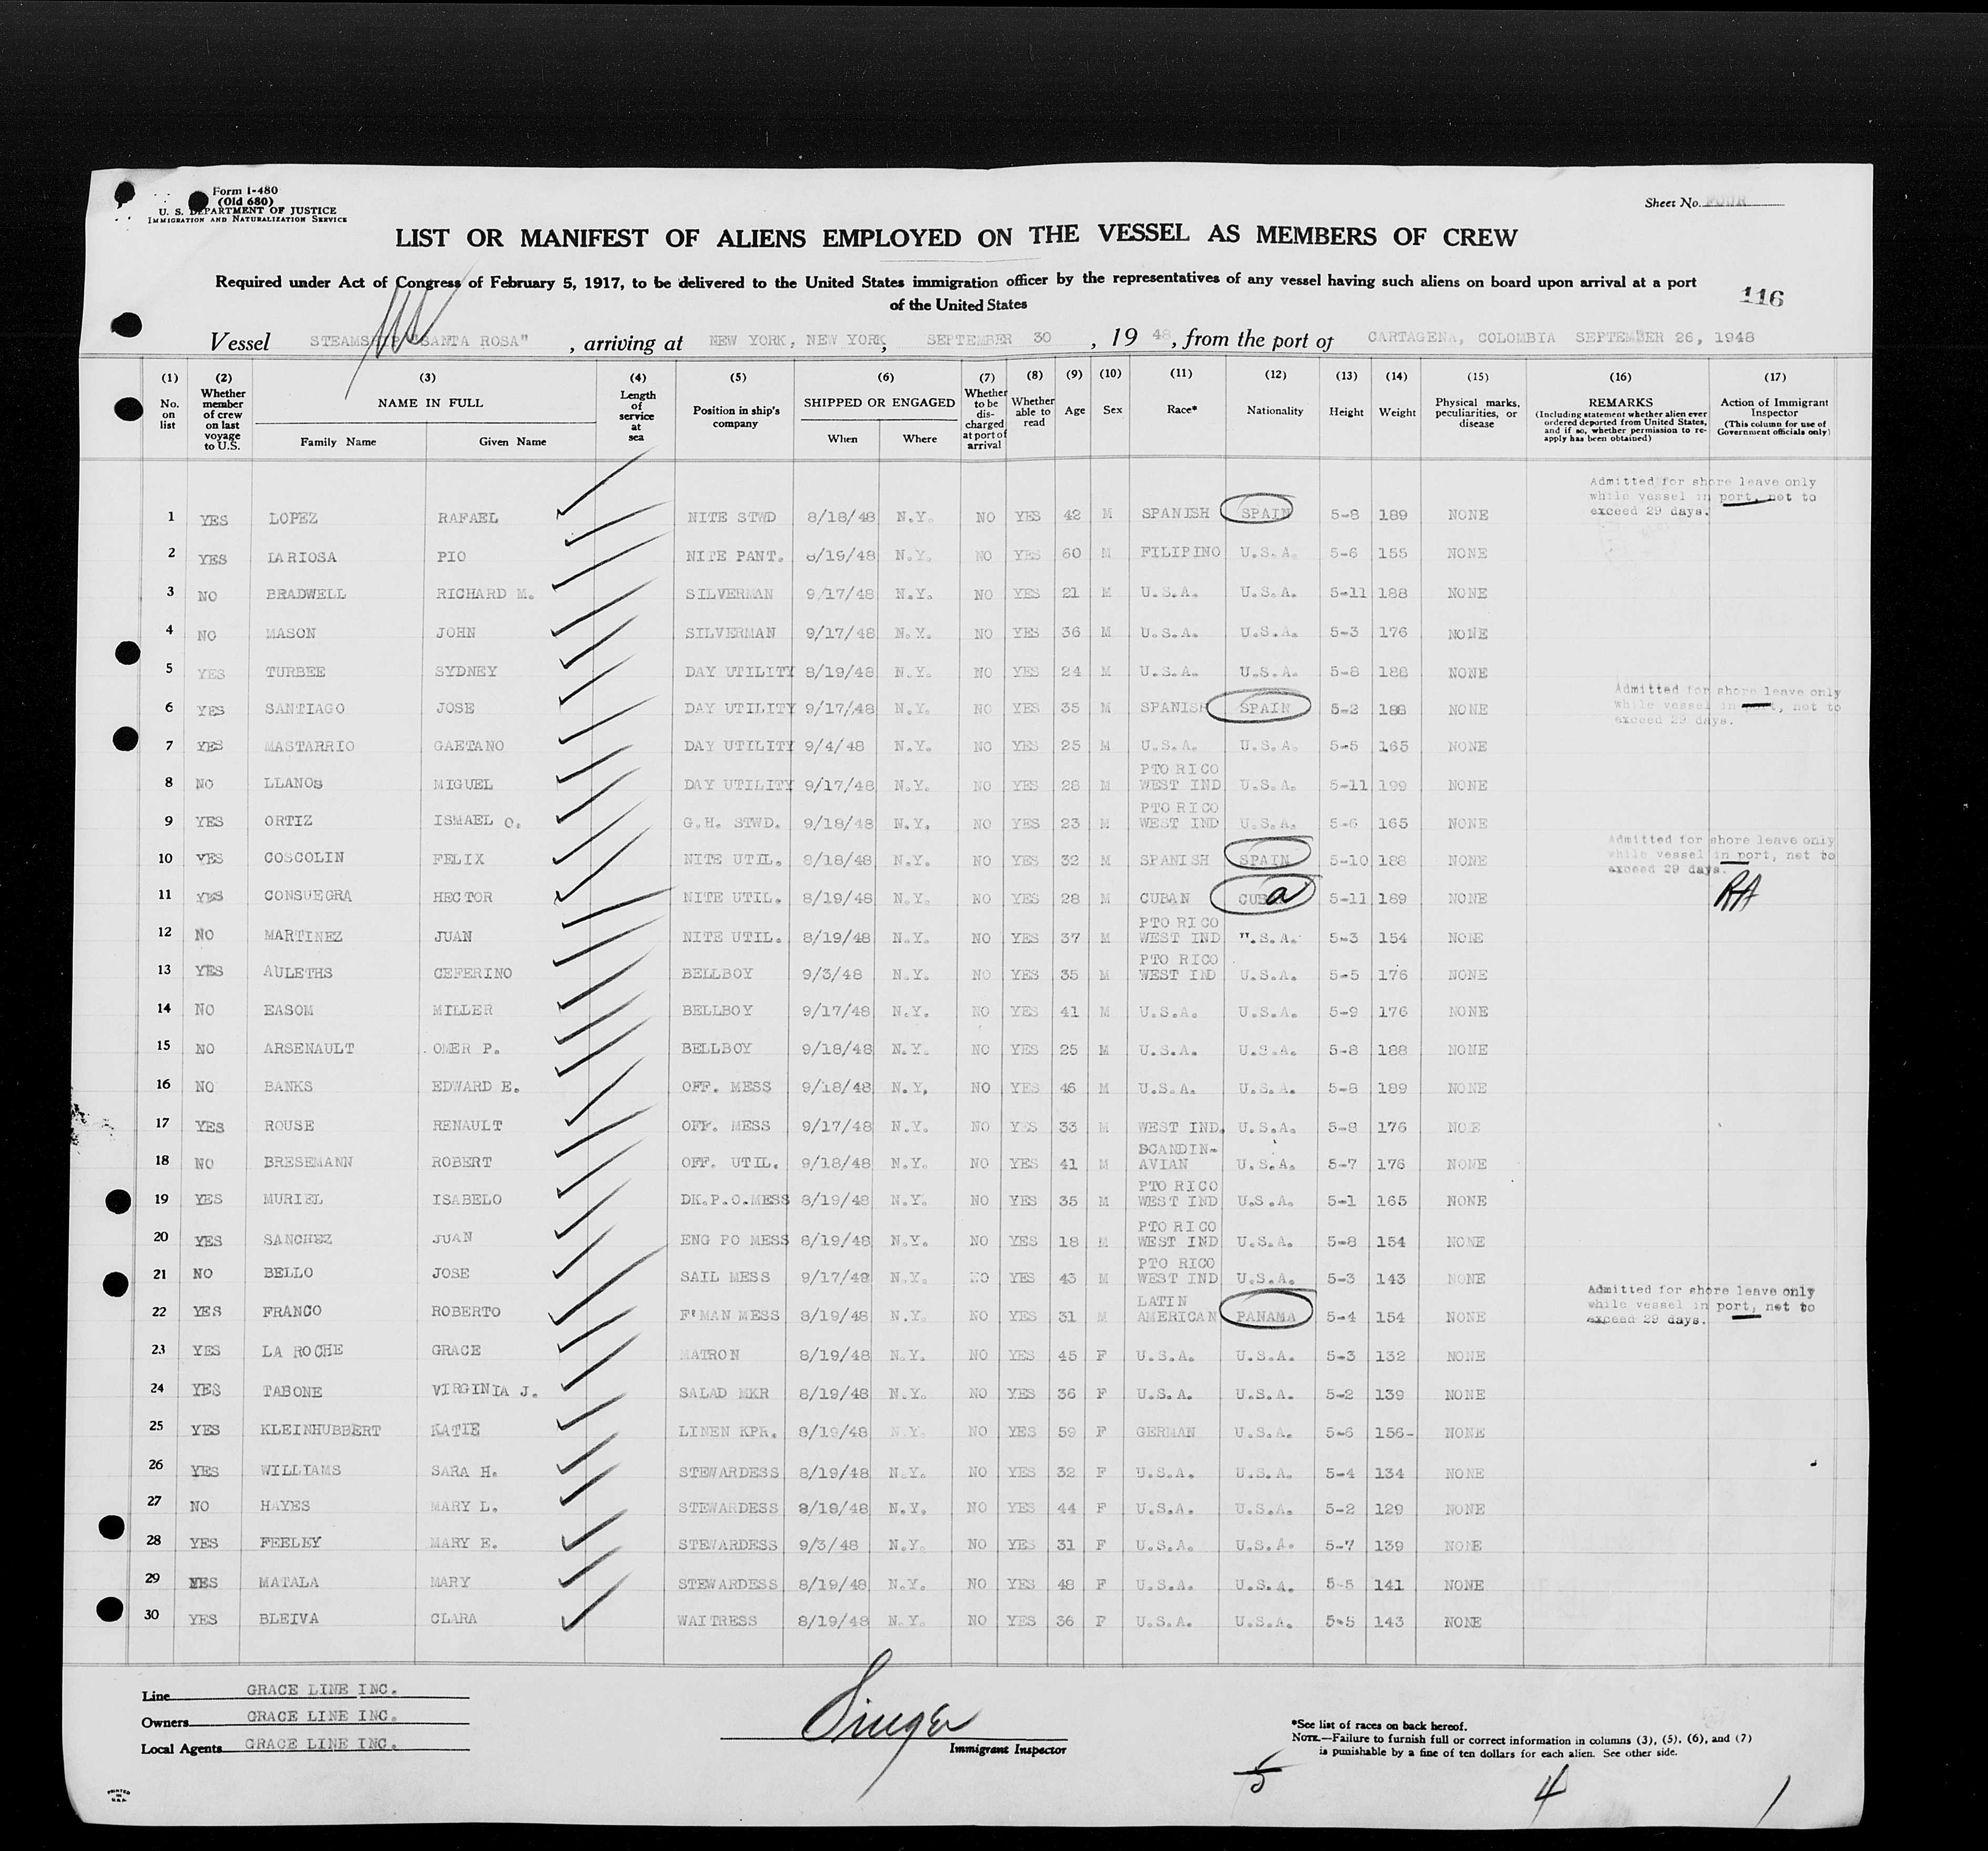 Form I-480
(Old 680)
U. S. DEPARTMENT OF JUSTICE
IMMIGRATION AND NATURALIZATION SERVICE
Sheet No. FOUR
LIST OR MANIFEST OF ALIENS EMPLOYED ON THE VESSEL AS MEMBERS OF CREW
Required under Act of Congress of February 5, 1917, to be delivered to the United States immigration officer by the representatives of any vessel having such aliens on board upon arrival at a port
of the United States
116
Vessel STEAMSHIP "SANTA ROSA" , arriving at NEW YORK, NEW YORK, SEPTEMBER 30 , 19 48, from the port of CARTAGENA, COLOMBIA SEPTEMBER 26, 1948
(1) No. on list (2) Whether member of crew on last voyage to U.S. (3) NAME IN FULL Family Name Given Name (4) Length of service at sea (5) Position in ship's company (6) SHIPPED OR ENGAGED When Where (7) Whether to be discharged at port of arrival (8) Whether able to read (9) Age (10) Sex (11) Race* (12) Nationality (13) Height (14) Weight (15) Physical marks, peculiarities, or disease (16) REMARKS (Including statement whether alien ever ordered deported from United States, and if so, whether permission to reapply has been obtained) (17) Action of Immigrant Inspector (This column for use of Government officials only)
1 YES LOPEZ RAFAEL NITE STWD 8/18/48 N.Y. NO YES 42 M SPANISH SPAIN 5-8 189 NONE Admitted for shore leave only while vessel in port, not to exceed 29 days.
2 YES LARIOSA PIO NITE PANT. 8/19/48 N.Y. NO YES 60 M FILIPINO U.S.A. 5-6 155 NONE
3 NO BRADWELL RICHARD M. SILVERMAN 9/17/48 N.Y. NO YES 21 M U.S.A. U.S.A. 5-11 188 NONE
4 NO MASON JOHN SILVERMAN 9/17/48 N.Y. NO YES 36 M U.S.A. U.S.A. 5-3 176 NONE
5 YES TURBEE SYDNEY DAY UTILITY 8/19/48 N.Y. NO YES 24 M U.S.A. U.S.A. 5-8 188 NONE
6 YES SANTIAGO JOSE DAY UTILITY 9/17/48 N.Y. NO YES 35 M SPANISH SPAIN 5-2 188 NONE Admitted for shore leave only while vessel in port, not to exceed 29 days.
7 YES MASTARRIO GAETANO DAY UTILITY 9/4/48 N.Y. NO YES 25 M U.S.A. U.S.A. 5-5 165 NONE
8 NO LLANOS MIGUEL DAY UTILITY 9/17/48 N.Y. NO YES 28 M PTO RICO WEST IND U.S.A. 5-11 199 NONE
9 YES ORTIZ ISMAEL O. G.H. STWD. 9/18/48 N.Y. NO YES 23 M PTO RICO WEST IND U.S.A. 5-6 165 NONE
10 YES COSCOLIN FELIX NITE UTIL. 8/18/48 N.Y. NO YES 32 M SPANISH SPAIN 5-10 188 NONE Admitted for shore leave only while vessel in port, not to exceed 29 days.
11 YES CONSUEGRA HECTOR NITE UTIL. 8/19/48 N.Y. NO YES 28 M CUBAN CUBa 5-11 189 NONE RA
12 NO MARTINEZ JUAN NITE UTIL. 8/19/48 N.Y. NO YES 37 M PTO RICO WEST IND U.S.A. 5-3 154 NONE
13 YES AULETHS CEFERINO BELLBOY 9/3/48 N.Y. NO YES 35 M PTO RICO WEST IND U.S.A. 5-5 176 NONE
14 NO EASOM MILLER BELLBOY 9/17/48 N.Y. NO YES 41 M U.S.A. U.S.A. 5-9 176 NONE
15 NO ARSENAULT OMER P. BELLBOY 9/18/48 N.Y. NO YES 25 M U.S.A. U.S.A. 5-8 188 NONE
16 NO BANKS EDWARD E. OFF. MESS 9/18/48 N.Y, NO YES 46 M U.S.A. U.S.A. 5-8 189 NONE
17 YES ROUSE RENAULT OFF. MESS 9/17/48 N.Y. NO YES 33 M WEST IND. U.S.A. 5-8 176 NO E
18 NO BRESEMANN ROBERT OFF. UTIL. 9/18/48 N.Y. NO YES 41 M SCANDIN-AVIAN U.S.A. 5-7 176 NONE
19 YES MURIEL ISABELO DK.P.O.MESS 8/19/48 N.Y. NO YES 35 M PTO RICO WEST IND U.S.A. 5-1 165 NONE
20 YES SANCHEZ JUAN ENG PO MESS 8/19/48 N.Y. NO YES 18 M PTO RICO WEST IND U.S.A. 5-8 154 NONE
21 NO BELLO JOSE SAIL MESS 9/17/48 N.Y. NO YES 43 M PTO RICO WEST IND U.S.A. 5-3 143 NONE
22 YES FRANCO ROBERTO F'MAN MESS 8/19/48 N.Y. NO YES 31 M LATIN AMERICAN PANAMA 5-4 154 NONE Admitted for shore leave only while vessel in port, not to exceed 29 days.
23 YES LA ROCHE GRACE MATRON 8/19/48 N.Y. NO YES 45 F U.S.A. U.S.A. 5-3 132 NONE
24 YES TABONE VIRGINIA J. SALAD MKR 8/19/48 N.Y. NO YES 36 F U.S.A. U.S.A. 5-2 139 NONE
25 YES KLEINHUBBERT KATIE LINEN KPR. 8/19/48 N.Y. NO YES 59 F GERMAN U.S.A. 5-6 156- NONE
26 YES WILLIAMS SARA H. STEWARDESS 8/19/48 N.Y. NO YES 32 F U.S.A. U.S.A. 5-4 134 NONE
27 NO HAYES MARY L. STEWARDESS 8/18/48 N.Y. NO YES 44 F U.S.A. U.S.A. 5-2 129 NONE
28 YES FEELEY MARY E. STEWARDESS 9/3/48 N.Y. NO YES 31 F U.S.A. U.S.A. 5-7 139 NONE
29 YES MATALA MARY STEWARDESS 8/19/48 N.Y. NO YES 48 F U.S.A. U.S.A. 5-5 141 NONE
30 YES BLEIVA CLARA WAITRESS 8/19/48 N.Y. NO YES 36 F U.S.A. U.S.A. 5-5 143 NONE
Line GRACE LINE INC.
Owners GRACE LINE INC.
Local Agents GRACE LINE INC.
Singer
Immigrant Inspector
*See list of races on back hereof.
NOTE.—Failure to furnish full or correct information in columns (3), (5), (6), and (7)
is punishable by a fine of ten dollars for each alien. See other side.
5 4 1
PRINTED IN U.S.A.